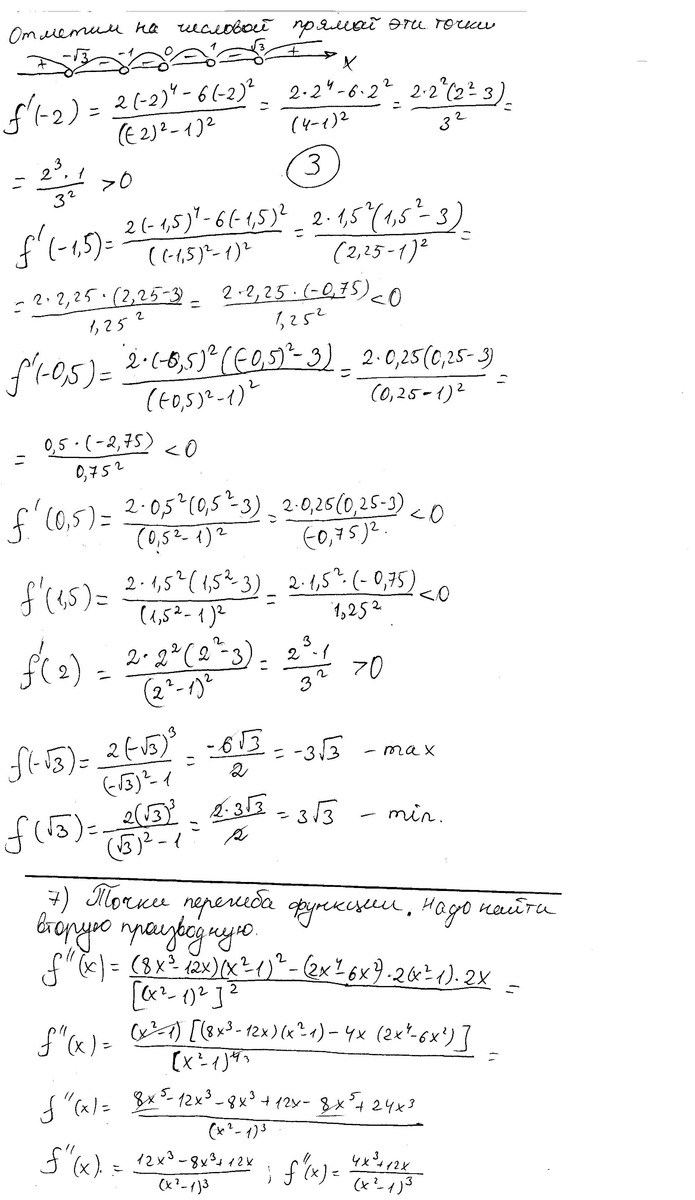 Отметим на числовой прямой эти точки
+ -√3 − -1 − 0 − 1 − √3 + x
f'(-2) = (2(-2)^4 - 6(-2)^2)/((-2)^2 - 1)^2 = (2·2^4 - 6·2^2)/(4-1)^2 = (2·2^2(2^2-3))/3^2 =
= (2^3·1)/3^2 > 0
3
f'(-1,5) = (2(-1,5)^4 - 6(-1,5)^2)/((-1,5)^2 - 1)^2 = (2·1,5^2(1,5^2-3))/(2,25-1)^2 =
= (2·2,25·(2,25-3))/1,25^2 = (2·2,25·(-0,75))/1,25^2 < 0
f'(-0,5) = (2·(-0,5)^2((-0,5)^2-3))/((-0,5)^2-1)^2 = (2·0,25(0,25-3))/(0,25-1)^2 =
= (0,5·(-2,75))/0,75^2 < 0
f'(0,5) = (2·0,5^2(0,5^2-3))/(0,5^2-1)^2 = (2·0,25(0,25-3))/(-0,75)^2 < 0
f'(1,5) = (2·1,5^2(1,5^2-3))/(1,5^2-1)^2 = (2·1,5^2·(-0,75))/1,25^2 < 0
f'(2) = (2·2^2(2^2-3))/(2^2-1)^2 = (2^3·1)/3^2 > 0
f(-√3) = (2(-√3)^3)/((-√3)^2-1) = (-6√3)/2 = -3√3 - max
f(√3) = (2(√3)^3)/((√3)^2-1) = (2·3√3)/2 = 3√3 - min.
7) Точки перегиба функции. Надо найти
вторую производную.
f''(x) = ((8x^3-12x)(x^2-1)^2 - (2x^4-6x^2)·2(x^2-1)·2x)/[(x^2-1)^2]^2 =
f''(x) = ((x^2-1)[(8x^3-12x)(x^2-1) - 4x(2x^4-6x^2)])/[x^2-1)^4 3 =
f''(x) = (8x^5-12x^3-8x^3+12x-8x^5+24x^3)/(x^2-1)^3
f''(x) = (12x^3-8x^3+12x)/(x^2-1)^3 ; f''(x) = (4x^3+12x)/(x^2-1)^3